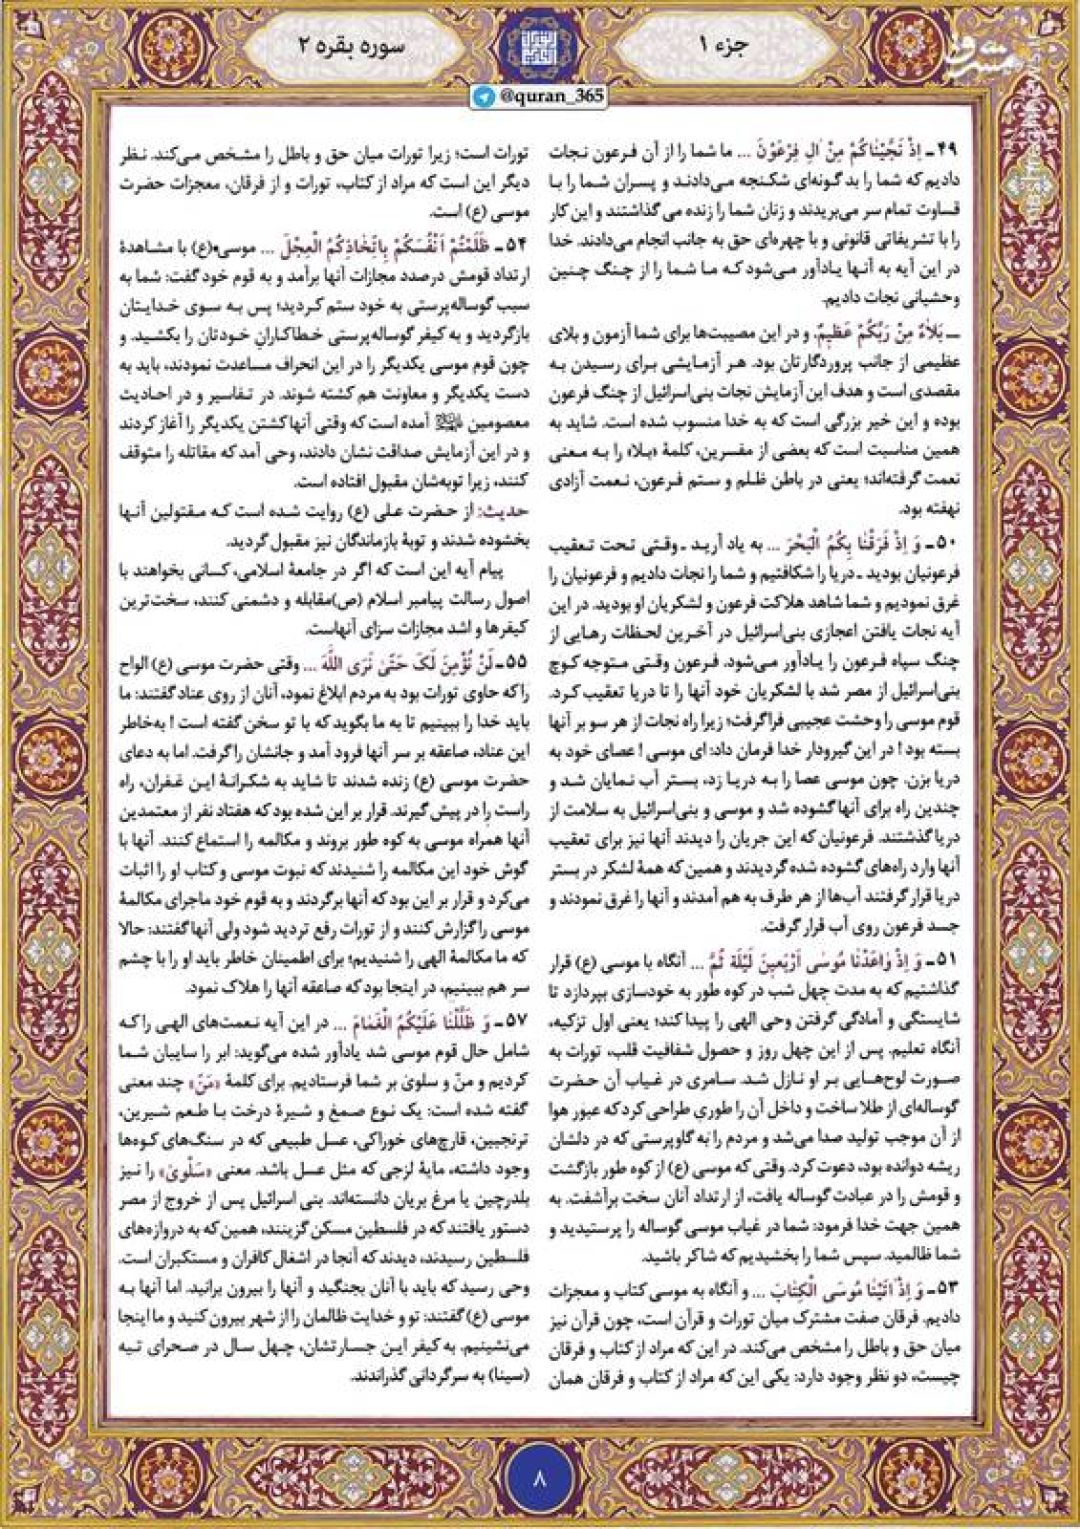 جزء ۱
سوره بقره ۲
@quran_365
مشرق
۴۹ـ اِذْ نَجَّيْنٰاكُمْ مِنْ اٰلِ فِرْعَوْنَ ... ما شما را از آن فرعون نجات
دادیم که شما را بد گونه‌ای شکنجه می‌دادند و پسران شما را با
قساوت تمام سر می‌بریدند و زنان شما را زنده می گذاشتند و این کار
را با تشریفاتی قانونی و با چهره‌ای حق به جانب انجام می‌دادند. خدا
در این آیه به آنها یادآور می‌شود که ما شما را از چنگ چنین
وحشیانی نجات دادیم.
ـ بَلاٰءٌ مِنْ رَبِّكُمْ عَظِيمٌ. و در این مصیبت‌ها برای شما آزمون و بلای
عظیمی از جانب پروردگارتان بود. هر آزمایشی برای رسیدن به
مقصدی است و هدف این آزمایش نجات بنی‌اسرائیل از چنگ فرعون
بوده و این خیر بزرگی است که به خدا منسوب شده است. شاید به
همین مناسبت است که بعضی از مفسرین، کلمهٔ «بلا» را به معنی
نعمت گرفته‌اند؛ یعنی در باطن ظلم و ستم فرعون، نعمت آزادی
نهفته بود.
۵۰ـ وَ اِذْ فَرَقْنٰا بِكُمُ الْبَحْرَ ... به یاد آرید ـ وقتی تحت تعقیب
فرعونیان بودید ـ دریا را شکافتیم و شما را نجات دادیم و فرعونیان را
غرق نمودیم و شما شاهد هلاکت فرعون و لشکریان او بودید. در این
آیه نجات یافتن اعجازی بنی‌اسرائیل در آخرین لحظات رهایی از
چنگ سپاه فرعون را یادآور می‌شود. فرعون وقتی متوجه کوچ
بنی‌اسرائیل از مصر شد با لشکریان خود آنها را تا دریا تعقیب کرد.
قوم موسی را وحشت عجیبی فراگرفت؛ زیرا راه نجات از هر سو بر آنها
بسته بود ! در این گیرودار خدا فرمان داد: ای موسی ! عصای خود به
دریا بزن. چون موسی عصا را به دریا زد، بستر آب نمایان شد و
چندین راه برای آنها گشوده شد و موسی و بنی‌اسرائیل به سلامت از
دریا گذشتند. فرعونیان که این جریان را دیدند آنها نیز برای تعقیب
آنها وارد راه‌های گشوده شده گردیدند و همین که همهٔ لشکر در بستر
دریا قرار گرفتند آب‌ها از هر طرف به هم آمدند و آنها را غرق نمودند و
جسد فرعون روی آب قرار گرفت.
۵۱ـ وَ اِذْ وٰاعَدْنٰا مُوسٰى اَرْبَعِينَ لَيْلَةً ثُمَّ ... آنگاه با موسی (ع) قرار
گذاشتیم که به مدت چهل شب در کوه طور به خودسازی بپردازد تا
شایستگی و آمادگی گرفتن وحی الهی را پیدا کند؛ یعنی اول تزکیه،
آنگاه تعلیم. پس از این چهل روز و حصول شفافیت قلب، تورات به
صورت لوح‌هایی بر او نازل شد. سامری در غیاب آن حضرت
گوساله‌ای از طلا ساخت و داخل آن را طوری طراحی کرد که عبور هوا
از آن موجب تولید صدا می‌شد و مردم را به گاوپرستی که در دلشان
ریشه دوانده بود، دعوت کرد. وقتی که موسی (ع) از کوه طور بازگشت
و قومش را در عبادت گوساله یافت، از ارتداد آنان سخت برآشفت. به
همین جهت خدا فرمود: شما در غیاب موسی گوساله را پرستیدید و
شما ظالمید. سپس شما را بخشیدیم که شاکر باشید.
۵۳ـ وَ اِذْ اٰتَيْنٰا مُوسَى الْكِتٰابَ ... و آنگاه به موسی کتاب و معجزات
دادیم. فرقان صفت مشترک میان تورات و قرآن است، چون قرآن نیز
میان حق و باطل را مشخص می‌کند. در این که مراد از کتاب و فرقان
چیست، دو نظر وجود دارد: یکی این که مراد از کتاب و فرقان همان
تورات است؛ زیرا تورات میان حق و باطل را مشخص می‌کند. نظر
دیگر این است که مراد از کتاب، تورات و از فرقان، معجزات حضرت
موسی (ع) است.
۵۴ـ ظَلَمْتُمْ اَنْفُسَكُمْ بِاتِّخٰاذِكُمُ الْعِجْلَ ... موسی(ع) با مشاهدهٔ
ارتداد قومش درصدد مجازات آنها برآمد و به قوم خود گفت: شما به
سبب گوساله‌پرستی به خود ستم کردید؛ پس به سوی خدایتان
بازگردید و به کیفر گوساله‌پرستی خطاکارانِ خودتان را بکشید. و
چون قوم موسی یکدیگر را در این انحراف مساعدت نمودند، باید به
دست یکدیگر و معاونت هم کشته شوند. در تفاسیر و در احادیث
معصومین آمده است که وقتی آنها کشتن یکدیگر را آغاز کردند
و در این آزمایش صداقت نشان دادند، وحی آمد که مقاتله را متوقف
کنند، زیرا توبه‌شان مقبول افتاده است.
حدیث: از حضرت علی (ع) روایت شده است که مقتولین آنها
بخشوده شدند و توبهٔ بازماندگان نیز مقبول گردید.
پیام آیه این است که اگر در جامعهٔ اسلامی، کسانی بخواهند با
اصول رسالت پیامبر اسلام (ص)مقابله و دشمنی کنند، سخت‌ترین
کیفرها و اشد مجازات سزای آنهاست.
۵۵ـ لَنْ نُؤْمِنَ لَكَ حَتّٰى نَرَى اللّٰهَ ... وقتی حضرت موسی (ع) الواح
را که حاوی تورات بود به مردم ابلاغ نمود، آنان از روی عناد گفتند: ما
باید خدا را ببینیم تا به ما بگوید که با تو سخن گفته است ! به‌خاطر
این عناد، صاعقه بر سر آنها فرود آمد و جانشان را گرفت. اما به دعای
حضرت موسی (ع) زنده شدند تا شاید به شکرانهٔ این غفران، راه
راست را در پیش گیرند. قرار بر این شده بود که هفتاد نفر از معتمدین
آنها همراه موسی به کوه طور بروند و مکالمه را استماع کنند. آنها با
گوش خود این مکالمه را شنیدند که نبوت موسی و کتاب او را اثبات
می‌کرد و قرار بر این بود که آنها برگردند و به قوم خود ماجرای مکالمهٔ
موسی را گزارش کنند و از تورات رفع تردید شود ولی آنها گفتند: حالا
که ما مکالمهٔ الهی را شنیدیم؛ برای اطمینان خاطر باید او را با چشم
سر هم ببینیم، در اینجا بود که صاعقه آنها را هلاک نمود.
۵۷ـ وَ ظَلَّلْنٰا عَلَيْكُمُ الْغَمٰامَ ... در این آیه نعمت‌های الهی را که
شامل حال قوم موسی شد یادآور شده می‌گوید: ابر را سایبان شما
کردیم و منّ و سلوی بر شما فرستادیم. برای کلمهٔ «مَنّ» چند معنی
گفته شده است: یک نوع صمغ و شیرهٔ درخت با طعم شیرین،
ترنجبین، قارچ‌های خوراکی، عسل طبیعی که در سنگ‌های کوه‌ها
وجود داشته، مایهٔ لزجی که مثل عسل باشد. معنی «سَلْوىٰ» را نیز
بلدرچین یا مرغ بریان دانسته‌اند. بنی اسرائیل پس از خروج از مصر
دستور یافتند که در فلسطین مسکن گزینند، همین که به دروازه‌های
فلسطین رسیدند، دیدند که آنجا در اشغال کافران و مستکبران است.
وحی رسید که باید با آنان بجنگید و آنها را بیرون برانید. اما آنها به
موسی (ع) گفتند: تو و خدایت ظالمان را از شهر بیرون کنید و ما اینجا
می‌نشینیم. به کیفر این جسارتشان، چهل سال در صحرای تیه
(سینا) به سرگردانی گذراندند.
۸